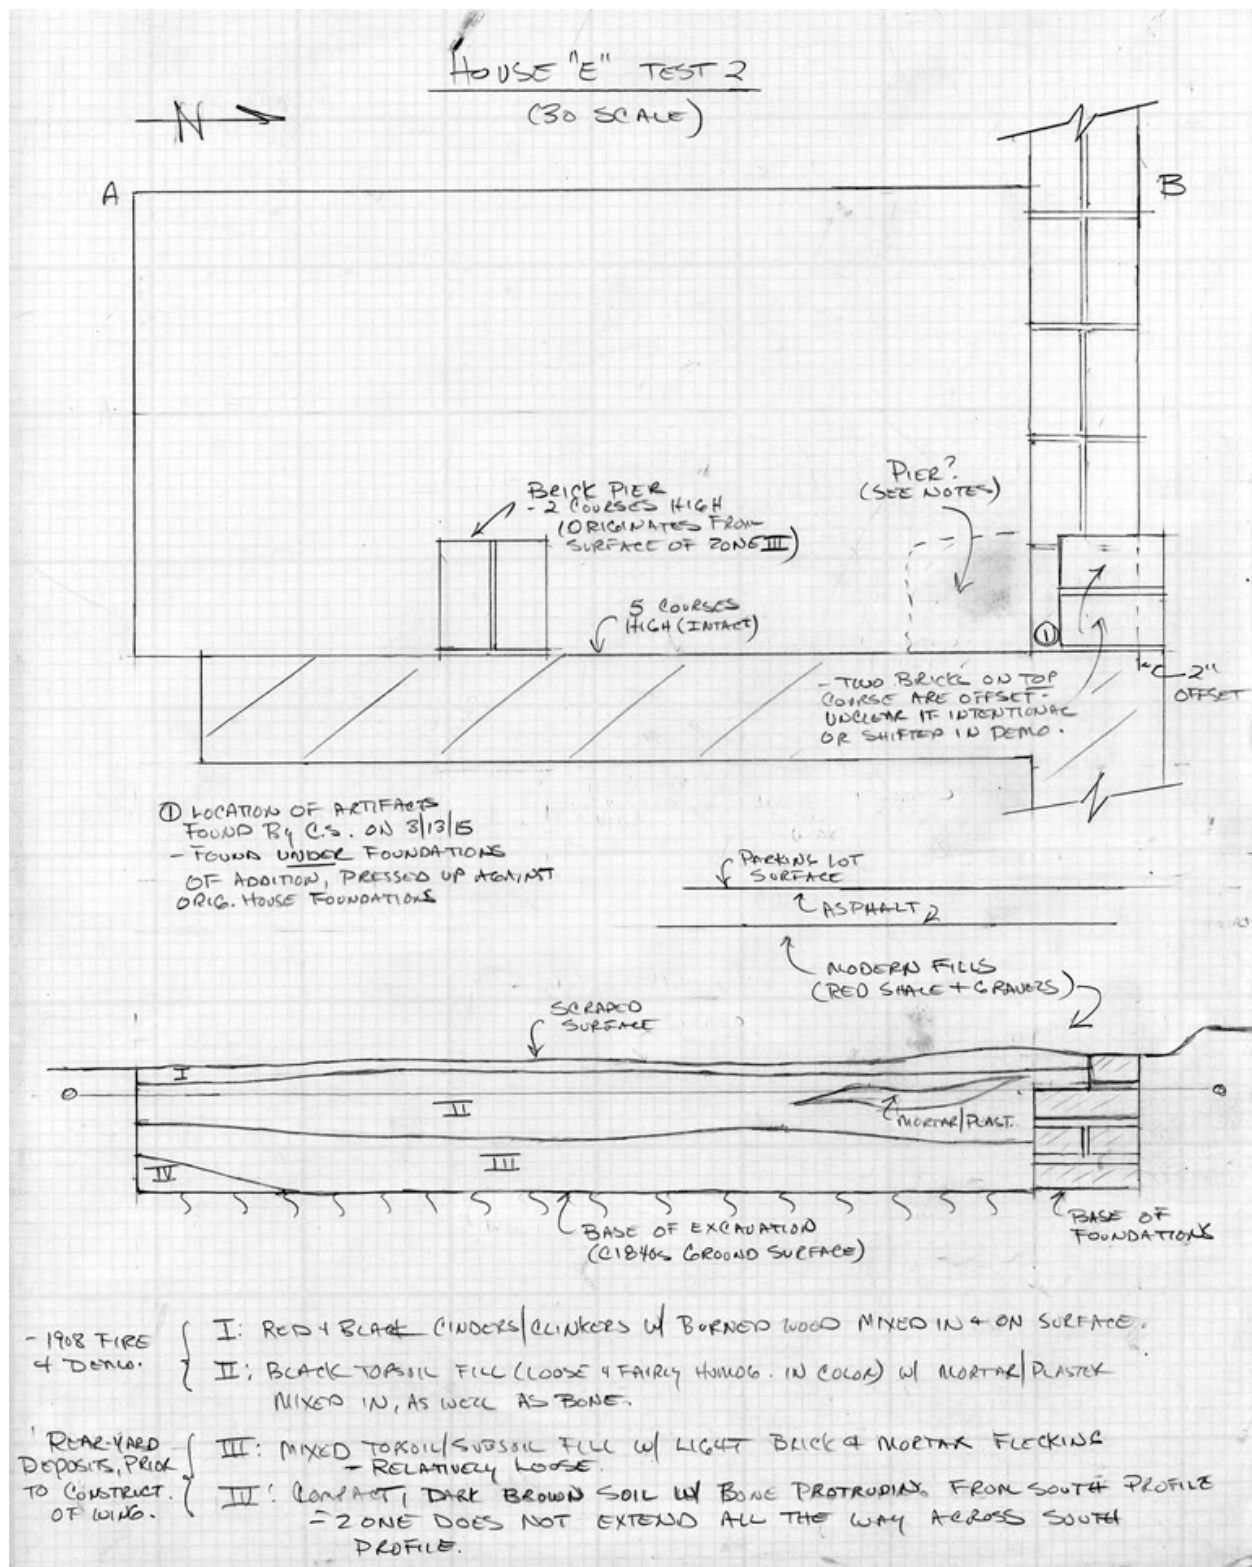 HOUSE "E" TEST 2
(30 SCALE)
N
A
B
BRICK PIER
- 2 COURSES HIGH
(ORIGINATES FROM
SURFACE OF ZONE III)
PIER?
(SEE NOTES)
5 COURSES
HIGH (INTACT)
①
- TWO BRICKS ON TOP
COURSE ARE OFFSET -
UNCLEAR IF INTENTIONAL
OR SHIFTED IN DEMO.
2"
OFFSET
① LOCATION OF ARTIFACTS
FOUND BY C.S. ON 3/13/15
- FOUND UNDER FOUNDATIONS
OF ADDITION, PRESSED UP AGAINST
ORIG. HOUSE FOUNDATIONS
PARKING LOT
SURFACE
ASPHALT
MODERN FILLS
(RED SHALE + GRAVELS)
SCRAPED
SURFACE
I
II
MORTAR/PLAST.
III
IV
BASE OF EXCAVATION
(C1840s GROUND SURFACE)
BASE OF
FOUNDATIONS
- 1908 FIRE
& DEMO.
I: RED & BLACK CINDERS/CLINKERS W/ BURNED WOOD MIXED IN & ON SURFACE.
II: BLACK TOPSOIL FILL (LOOSE & FAIRLY HOMOG. IN COLOR) W/ MORTAR/PLASTER
MIXED IN, AS WELL AS BONE.
REAR-YARD
DEPOSITS, PRIOR
TO CONSTRUCT.
OF WING.
III: MIXED TOPSOIL/SUBSOIL FILL W/ LIGHT BRICK & MORTAR FLECKING
- RELATIVELY LOOSE.
IV: COMPACT, DARK BROWN SOIL W/ BONE PROTRUDING FROM SOUTH PROFILE
- ZONE DOES NOT EXTEND ALL THE WAY ACROSS SOUTH
PROFILE.